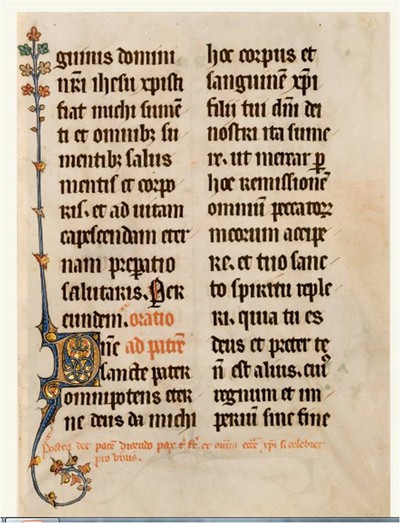 guinis domini
nr̄i ihesu xpisti
fiat michi sumē
ti et omnibꝫ su
mentibꝫ salus
mentis et corpo
ris. et ad uitam
capescendam eter
nam preparatio
salutaris. Per
eundem. oratio
Dn̄e ad patrē
sancte pater
omnipotens eter
ne deus da michi
hoc corpus et
sanguinē xp̄i
filii tui dn̄i dei
nostri ita sume
re. ut merear ꝑ
hoc remissionē
omniū peccatoꝝ
meorum accipe
re. et tuo sanc
to spiritu reple
ri. quia tu es
deus et preter te
n̄ est alius. cuiꝰ
regnum et im
periū sine fine
Postea det pacē dicendo pax t' et omni ecc̄e xp̄i si celebret
pro vivis.